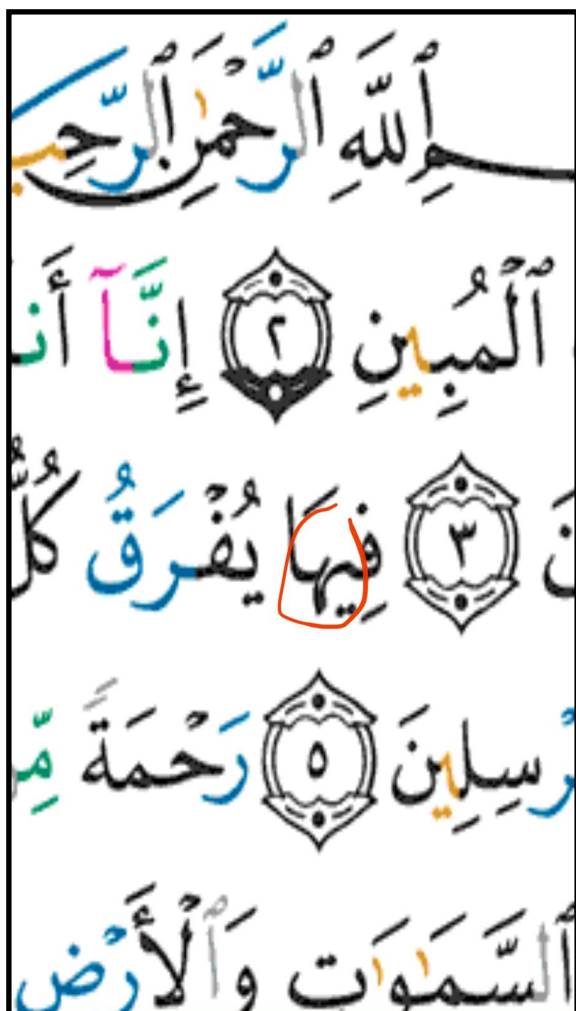 ـمِ ٱللَّهِ ٱلرَّحْمَٰنِ ٱلرَّحِيـ
ٱلْمُبِينِ ٢ إِنَّآ أَنـ
نَ ٣ فِيهَا يُفْرَقُ كُلُّ
رْسِلِينَ ٥ رَحْمَةً مِّـ
ٱلسَّمَٰوَٰتِ وَٱلْأَرْضِ